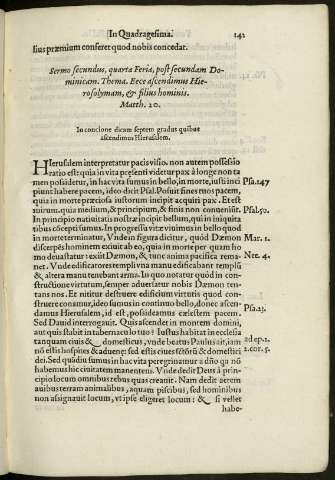 In Quadragesima. 142
lius præmium conferet quod nobis concedat.
Sermo secundus, quarta Feria, post secundam Do-
minicam. Thema. Ecce ascendimus Hie-
rosolymam, & filius hominis.
Matth. 20.
In concione dicam septem gradus quibus
ascendimus Hierusalem.
Hierusalem interpretatur pacis visio. non autem possessio
ratio est: quia in vita præsenti videtur pax à longe non ta
men possidetur, in hac vita sumus in bello, in morte, iusti inci Psa.147
piunt habere pacem, ideo dicit Psal. Posuit fines tuos pacem,
quia in morte præciosa iustorum incipit acquiri pax. Et est
nutrum, quia medium, & principium, & finis non conueniút. Psal.50.
In principio natiuitatis nostræ incipit bellum, quia in iniquita
tibus cócepti sumus. In progressu vitæ viuimus in bello quod
in morte terminatur, Vnde in figura dicitur, quòd Dæmon Mar. 1.
discerpés hominem exiuit ab eo, quia in morte per quam ho
mo deuastatur exiit Dæmon, & tunc anima pacifica rema-
net. Vnde ędificatores templi vna manu edificabant templũ Nee. 4.
& altera manu tenebant arma. In quo notatur quòd in con-
structione virtutum, semper aduersatur nobis Dæmon ten-
tans nos. Et nititur destruere ędificium virtutis quod con-
struere conamur, ideo sumus in continuo bello, donec ascen-
damus Hierusalem, id est, possideamus cælestem pacem. Psa.23.
Sed Dauid interrogauit. Quis ascendet in montem domini,
aut quis stabit in tabernaculo tuo? Iustus habitat in ecclesia
tanquam ciuis & domesticus, vnde beatus Paulus ait, iam ad ep.2.
nó estis hospites & aduenę; sed estis ciues sctórũ & domestici 2.cor.5.
dei. Sed quòdsi sumus in hac vita peregrinamur à dño qa nó
habemus hic ciuitatem manentem. Vnde dedit Deus à prin-
cipio locum omnibus rebus quas creauit. Nam dedit aerem
auibus terram animalibus, aquam piscibus, sed hominibus
non assignauit locum, vt ipse eligeret locum: & si vellet
habe-